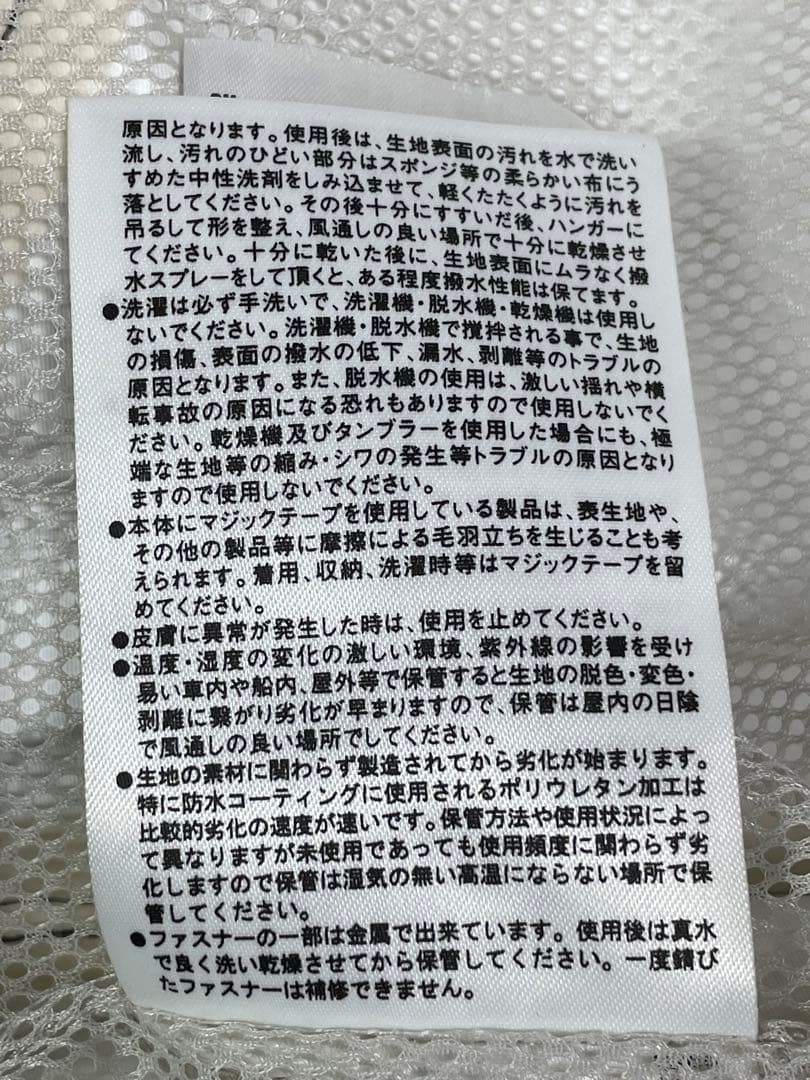 原因となります。使用後は、生地表面の汚れを水で洗い
流し、汚れのひどい部分はスポンジ等の柔らかい布にう
すめた中性洗剤をしみ込ませて、軽くたたくように汚れを
落としてください。その後十分にすすいだ後、ハンガーに
吊るして形を整え、風通しの良い場所で十分に乾燥させ
てください。十分に乾いた後に、生地表面にムラなく撥
水スプレーをして頂くと、ある程度撥水性能は保てます。
●洗濯は必ず手洗いで、洗濯機・脱水機・乾燥機は使用し
ないでください。洗濯機・脱水機で攪拌される事で、生地
の損傷、表面の撥水の低下、漏水、剥離等のトラブルの
原因となります。また、脱水機の使用は、激しい揺れや横
転事故の原因になる恐れもありますので使用しないでく
ださい。乾燥機及びタンブラーを使用した場合にも、極
端な生地等の縮み・シワの発生等トラブルの原因となり
ますので使用しないでください。
●本体にマジックテープを使用している製品は、表生地や、
その他の製品等に摩擦による毛羽立ちを生じることも考
えられます。着用、収納、洗濯時等はマジックテープを留
めてください。
●皮膚に異常が発生した時は、使用を止めてください。
●温度・湿度の変化の激しい環境、紫外線の影響を受け
易い車内や船内、屋外等で保管すると生地の脱色・変色・
剥離に繋がり劣化が早まりますので、保管は屋内の日陰
で風通しの良い場所でしてください。
●生地の素材に関わらず製造されてから劣化が始まります。
特に防水コーティングに使用されるポリウレタン加工は
比較的劣化の速度が速いです。保管方法や使用状況によっ
て異なりますが未使用であっても使用頻度に関わらず劣
化しますので保管は湿気の無い高温にならない場所で保
管してください。
●ファスナーの一部は金属で出来ています。使用後は真水
で良く洗い乾燥させてから保管してください。一度錆び
たファスナーは補修できません。